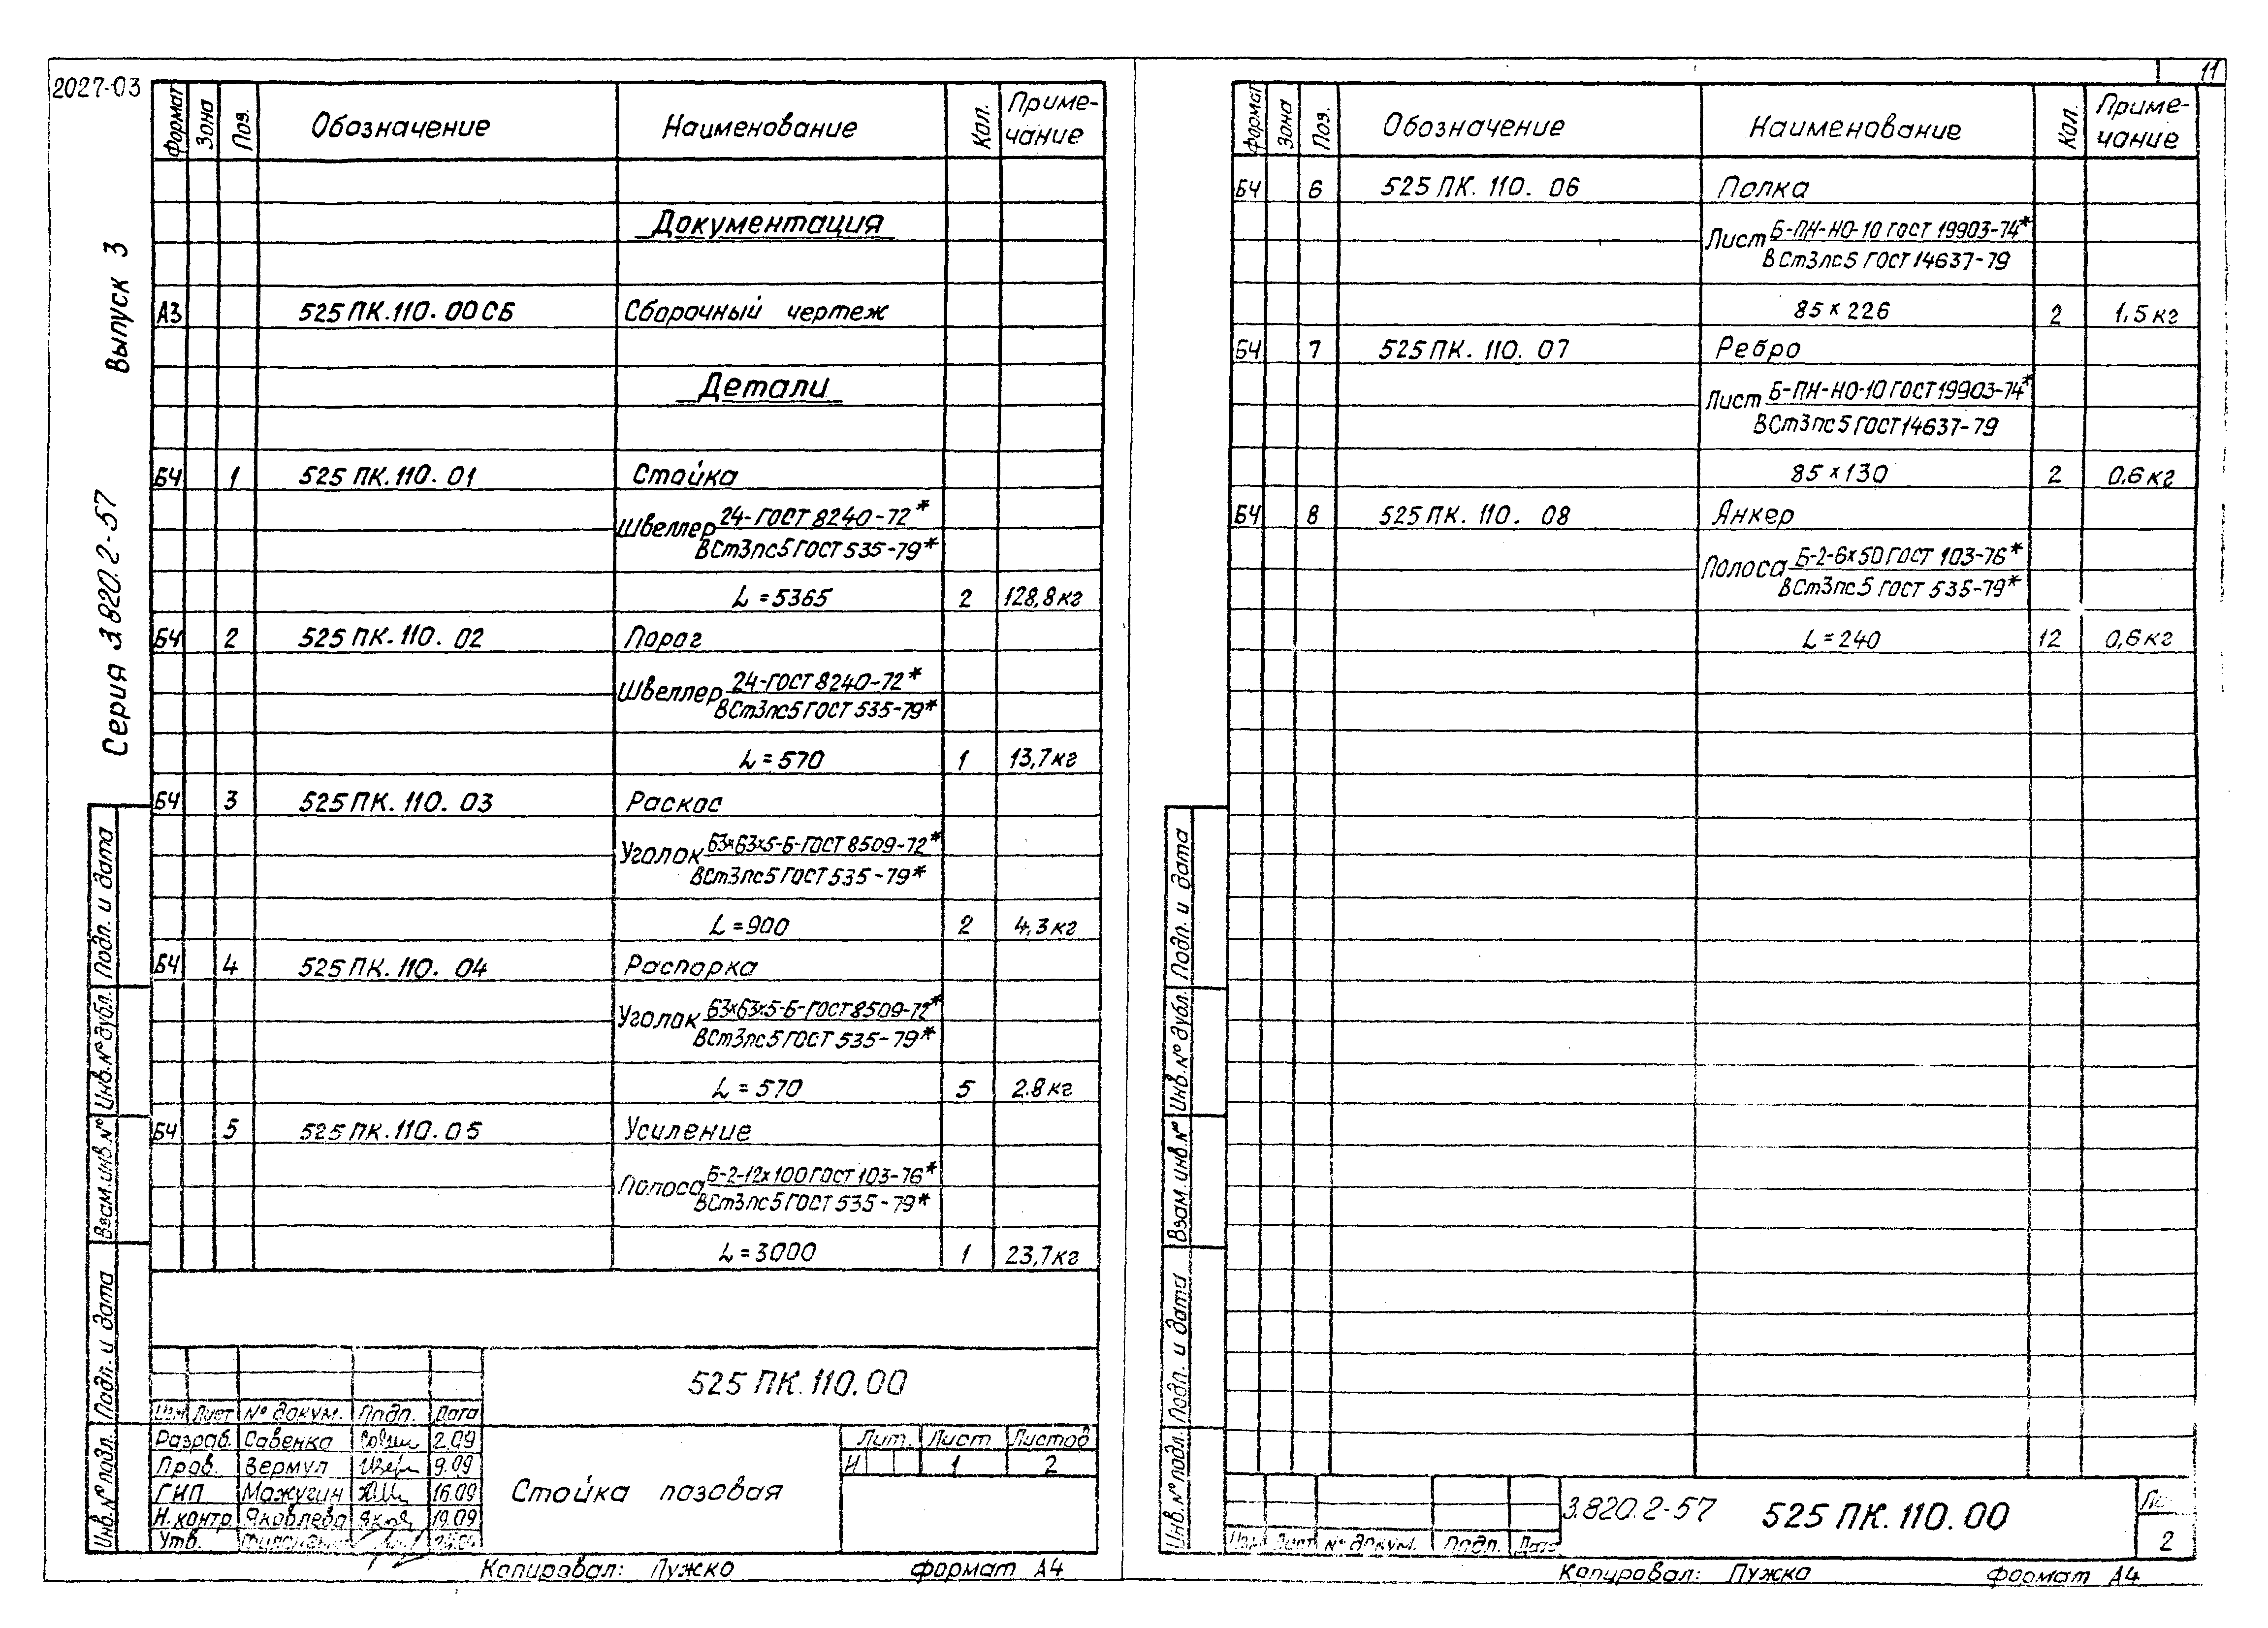 2027-03
Выпуск 3
Серия 3.820.2-57
Формат Зона Поз. Обозначение Наименование Кол. Приме-
чание
Документация
А3 525ПК.110.00СБ Сборочный чертеж
Детали
БЧ 1 525ПК.110.01 Стойка
Швеллер 24-ГОСТ 8240-72*
ВСт3пс5 ГОСТ 535-79*
L=5365 2 128,8кг
БЧ 2 525ПК.110.02 Порог
Швеллер 24-ГОСТ 8240-72*
ВСт3пс5 ГОСТ 535-79*
L=570 1 13,7кг
БЧ 3 525ПК.110.03 Раскос
Уголок 63х63х5-Б-ГОСТ 8509-72*
ВСт3пс5 ГОСТ 535-79*
L=900 2 4,3кг
БЧ 4 525ПК.110.04 Распорка
Уголок 63х63х5-Б-ГОСТ 8509-72*
ВСт3пс5 ГОСТ 535-79*
L=570 5 2.8кг
БЧ 5 525ПК.110.05 Усиление
Полоса Б-2-12х100 ГОСТ 103-76*
ВСт3пс5 ГОСТ 535-79*
L=3000 1 23,7кг
525ПК.110.00
Изм Лист № докум. Подп. Дата
Разраб. Савенко 2.09
Пров. Вермул 9.09
ГИП Мажугин 16.09
Н.контр Яковлева 19.09
Утв.
Стойка пазовая
Лит. Лист Листов
И 1 2
Копировал: Пужко формат А4
Инв.№ подл. Подп. и дата Взам.инв.№ Инв.№ дубл. Подп. и дата
11
Формат Зона Поз. Обозначение Наименование Кол. Приме-
чание
БЧ 6 525ПК.110.06 Полка
Лист Б-ПН-НО-10 ГОСТ 19903-74*
ВСт3пс5 ГОСТ 14637-79
85х226 2 1,5кг
БЧ 7 525ПК.110.07 Ребро
Лист Б-ПН-НО-10 ГОСТ 19903-74*
ВСт3пс5 ГОСТ 14637-79
85х130 2 0,6кг
БЧ 8 525ПК.110.08 Анкер
Полоса Б-2-6х50 ГОСТ 103-76*
ВСт3пс5 ГОСТ 535-79*
L=240 12 0,6кг
Инв.№ подл. Подп. и дата Взам.инв.№ Инв.№ дубл. Подп. и дата
Изм Лист № докум. Подп. Дата
3.820.2-57 525ПК.110.00
2
Копировал: Пужко формат А4